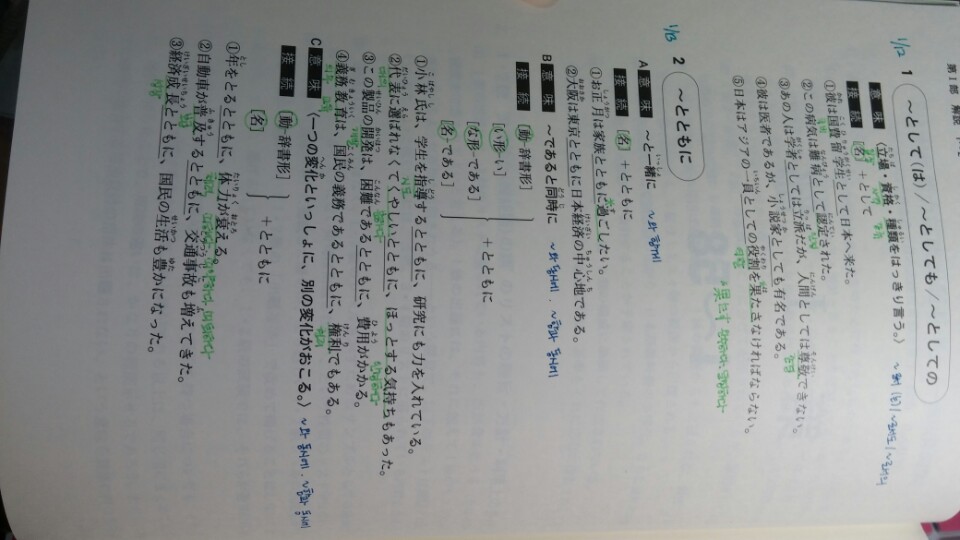 1/12
1 ～として(は)/～としても/～としての
意味 (立場・資格・種類をはっきり言う。)
接続 [名]+として
①彼は国費留学生として日本へ来た。
②この病気は難病として認定された。
③あの人は学者としては立派だが、人間としては尊敬できない。
④彼は医者であるが、小説家としても有名である。
⑤日本はアジアの一員としての役割を果たさなければならない。
1/13
2 ～とともに
A 意味 ～と一緒に ~와 함께
接続 [名]+とともに
①お正月は家族とともに過ごしたい。
②大阪は東京とともに日本経済の中心地である。
B 意味 ～であると同時に ~와 동시에 ~함과 동시에
接続 [動-辞書形]
[い形-い]
[な形-である]
[名-である]
+とともに
①小林氏は、学生を指導するとともに、研究にも力を入れている。
②代表に選ばれなくて、くやしいとともに、ほっとする気持ちもあった。
③この製品の開発は、困難であるとともに、費用がかかる。
④義務教育は、国民の義務であるとともに、権利でもある。
C 意味 (一つの変化といっしょに、別の変化がおこる。) ~와 동시에. ~함과 동시에
接続 [動-辞書形]
[名]
+とともに
①年をとるとともに、体力が衰える。
②自動車が普及するとともに、交通事故も増えてきた。
③経済成長とともに、国民の生活も豊かになった。